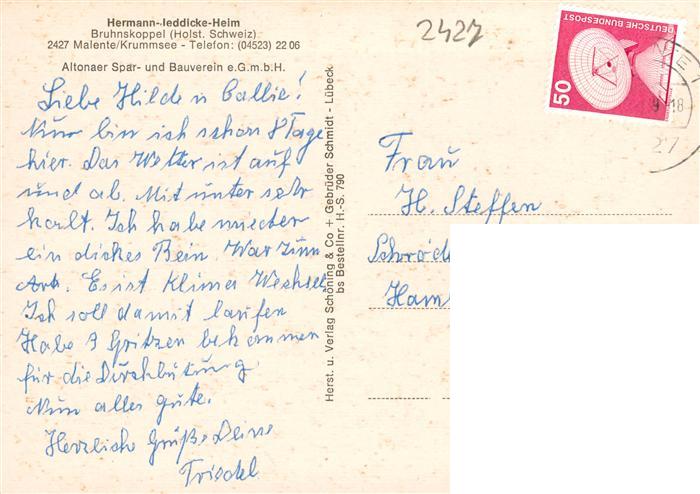 Hermann-Jeddicke-Heim
Bruhnskoppel (Holst. Schweiz)
2427 Malente/Krummsee - Telefon: (04523) 22 06
Altonaer Spar- und Bauverein e.G.m.b.H.
Liebe Hilde u Callie!
Nun bin ich schon 8 Tage
hier. Das Wetter ist auf
und ab. Mitunter sehr
kalt. Ich habe wieder
ein dickes Bein. War zum
Arb. Es ist Klima Wechsel
Ich soll damit laufen
Habe 9 Spritzen bekommen
für die Durchblutung
Nun alles gute.
Herzliche Grüße Deine
Friedel
Herst. u. Verlag Schöning & Co + Gebrüder Schmidt - Lübeck
bs Bestellnr. H.-S. 790
2427
DEUTSCHE BUNDESPOST
50
9.-18
27
Frau
H. Steffen
Schröd
Ham